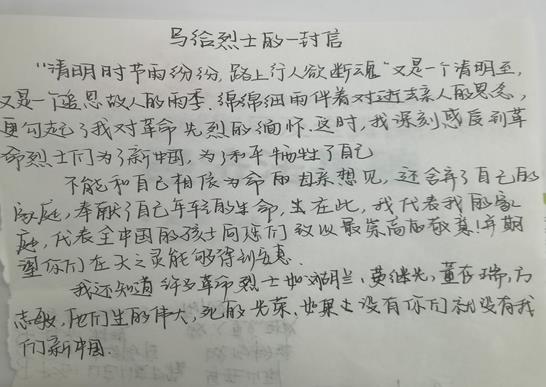 写给烈士的一封信
"清明时节雨纷纷,路上行人欲断魂"又是一个清明至,
又是一个追思故人的雨季.绵绵细雨伴着对逝去亲人的思念,
更勾起了我对革命先烈的缅怀.这时,我深刻感受到革
命烈士们为了新中国,为了和平牺牲了自己
不能和自己相依为命的母亲想见,还舍弃了自己的
家庭,奉献了自己年轻的生命,在此,我代表我的家
庭,代表全中国的孩子向你们致以最崇高的敬意!并期
望你们在天之灵能够得到安息.
我还知道许多革命烈士如刘胡兰、黄继光,董存瑞,方
志敏,他们生的伟大,死的光荣.如果没有你们就没有我
们新中国.